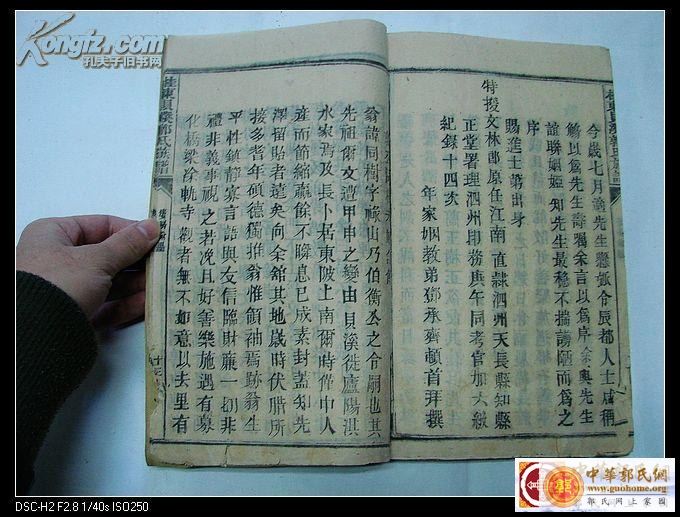 Kongfz.com
孔夫子旧书网
今歲七月翁先生懸弧令辰都人士咸稱
觴以爲先生壽獨余言以爲序余與先生
誼聯姻婭知先生最稔不揣謭陋而爲之
序
賜進士第出身
特授文林郎原任江南直隸泗州天長縣知縣
正堂署理泗州印務庚午同考官加六級
紀錄十四次
年家姻教弟鄧承齊頓首拜撰
翁諱同樹字祿山乃伯衡公之令嗣也其
先祖爾文遭甲申之變由貝溪徙廬陽淇
水家焉及長卜居東陂上南爾時僅中人
產而節縮贏餘不瞬息已成素封蓋知先
澤留貽者遠矣向余舘其地歲時伏腊所
接多耆年碩德獨推翁惟領袖焉跡翁生
平性鎮靜寡言語與友信臨財廉一切非
禮非義事視之若浼且好善樂施遇有募
化橋梁涂軌寺觀者無不如意以去里有
中華郭氏網
www.guohome.org
郭氏網上家園
DSC-H2 F2.8 1/40s ISO250